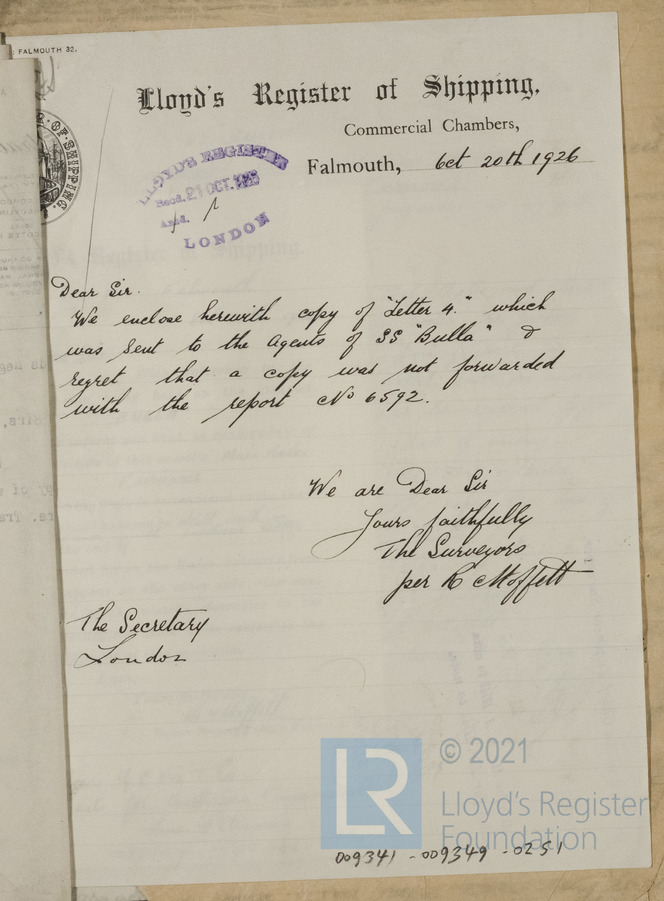 FALMOUTH 32.
Lloyd's Register of Shipping.
Commercial Chambers,
Falmouth, Oct 20th 1926
LLOYD'S REGISTER
Recd. 21 OCT. 1926
LONDON
OF SHIPPING.
Dear Sir.
We enclose herewith copy of "Letter 4." which
was sent to the Agents of SS "Bulla" &
regret that a copy was not forwarded
with the report No 6592.
We are Dear Sir
Yours faithfully
The Surveyors
per R Moffett
The Secretary
London
LR
© 2021
Lloyd's Register
Foundation
009341 - 009349 - 0251